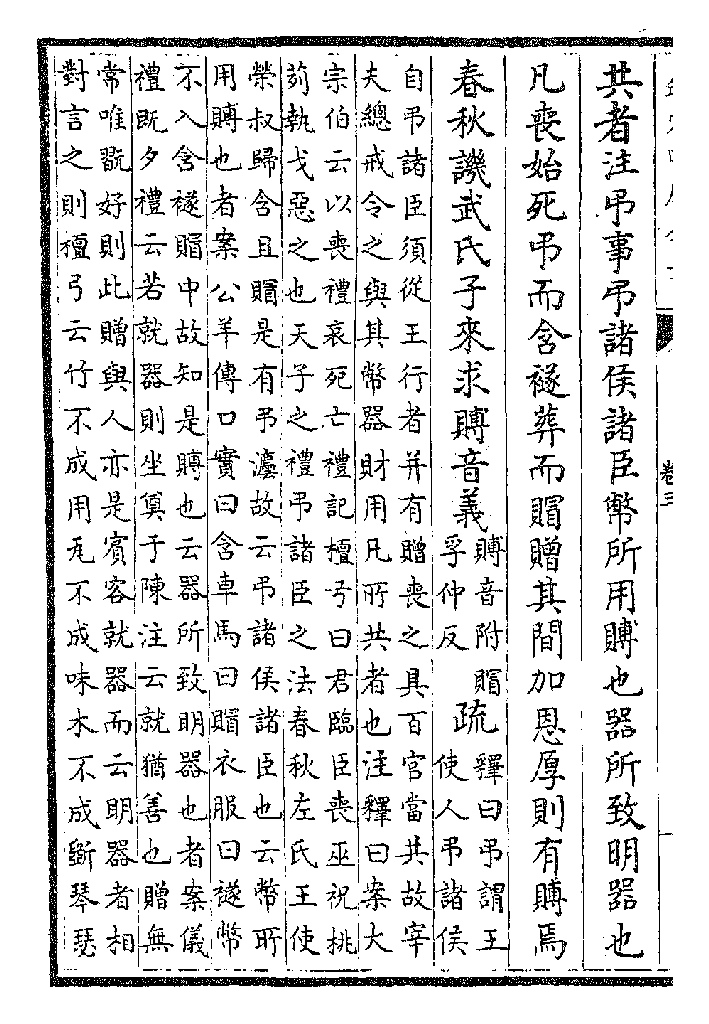 卷三
共者注弔事弔諸侯諸臣幣所用賻也器所致明器也
凡喪始死弔而含襚葬而賵贈其間加恩厚則有賻焉
春秋譏武氏子來求賻音義
賻音附賵
孚仲反
疏
釋曰弔謂王
使人弔諸侯
自弔諸臣須從王行者并有贈喪之具百官當共故宰
夫總戒令之與其幣器財用凡所共者也注釋曰案大
宗伯云以喪禮哀死亡禮記檀弓曰君臨臣喪巫祝桃
茢執戈惡之也天子之禮弔諸臣之法春秋左氏王使
榮叔歸含且賵是有弔灋故云弔諸侯諸臣也云幣所
用賻也者案公羊傳口實曰含車馬曰賵衣服曰襚幣
不入含襚賵中故知是賻也云器所致明器也者案儀
禮既夕禮云若就器則坐奠于陳注云就猶善也贈無
常唯翫好則此贈與人亦是賓客就器而云明器者相
對言之則檀弓云竹不成用瓦不成味木不成斲琴瑟